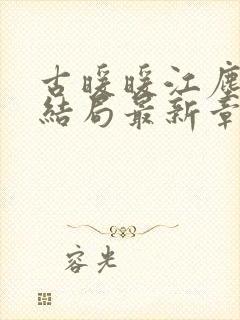 古暖暖江塵
結局最新章
容光